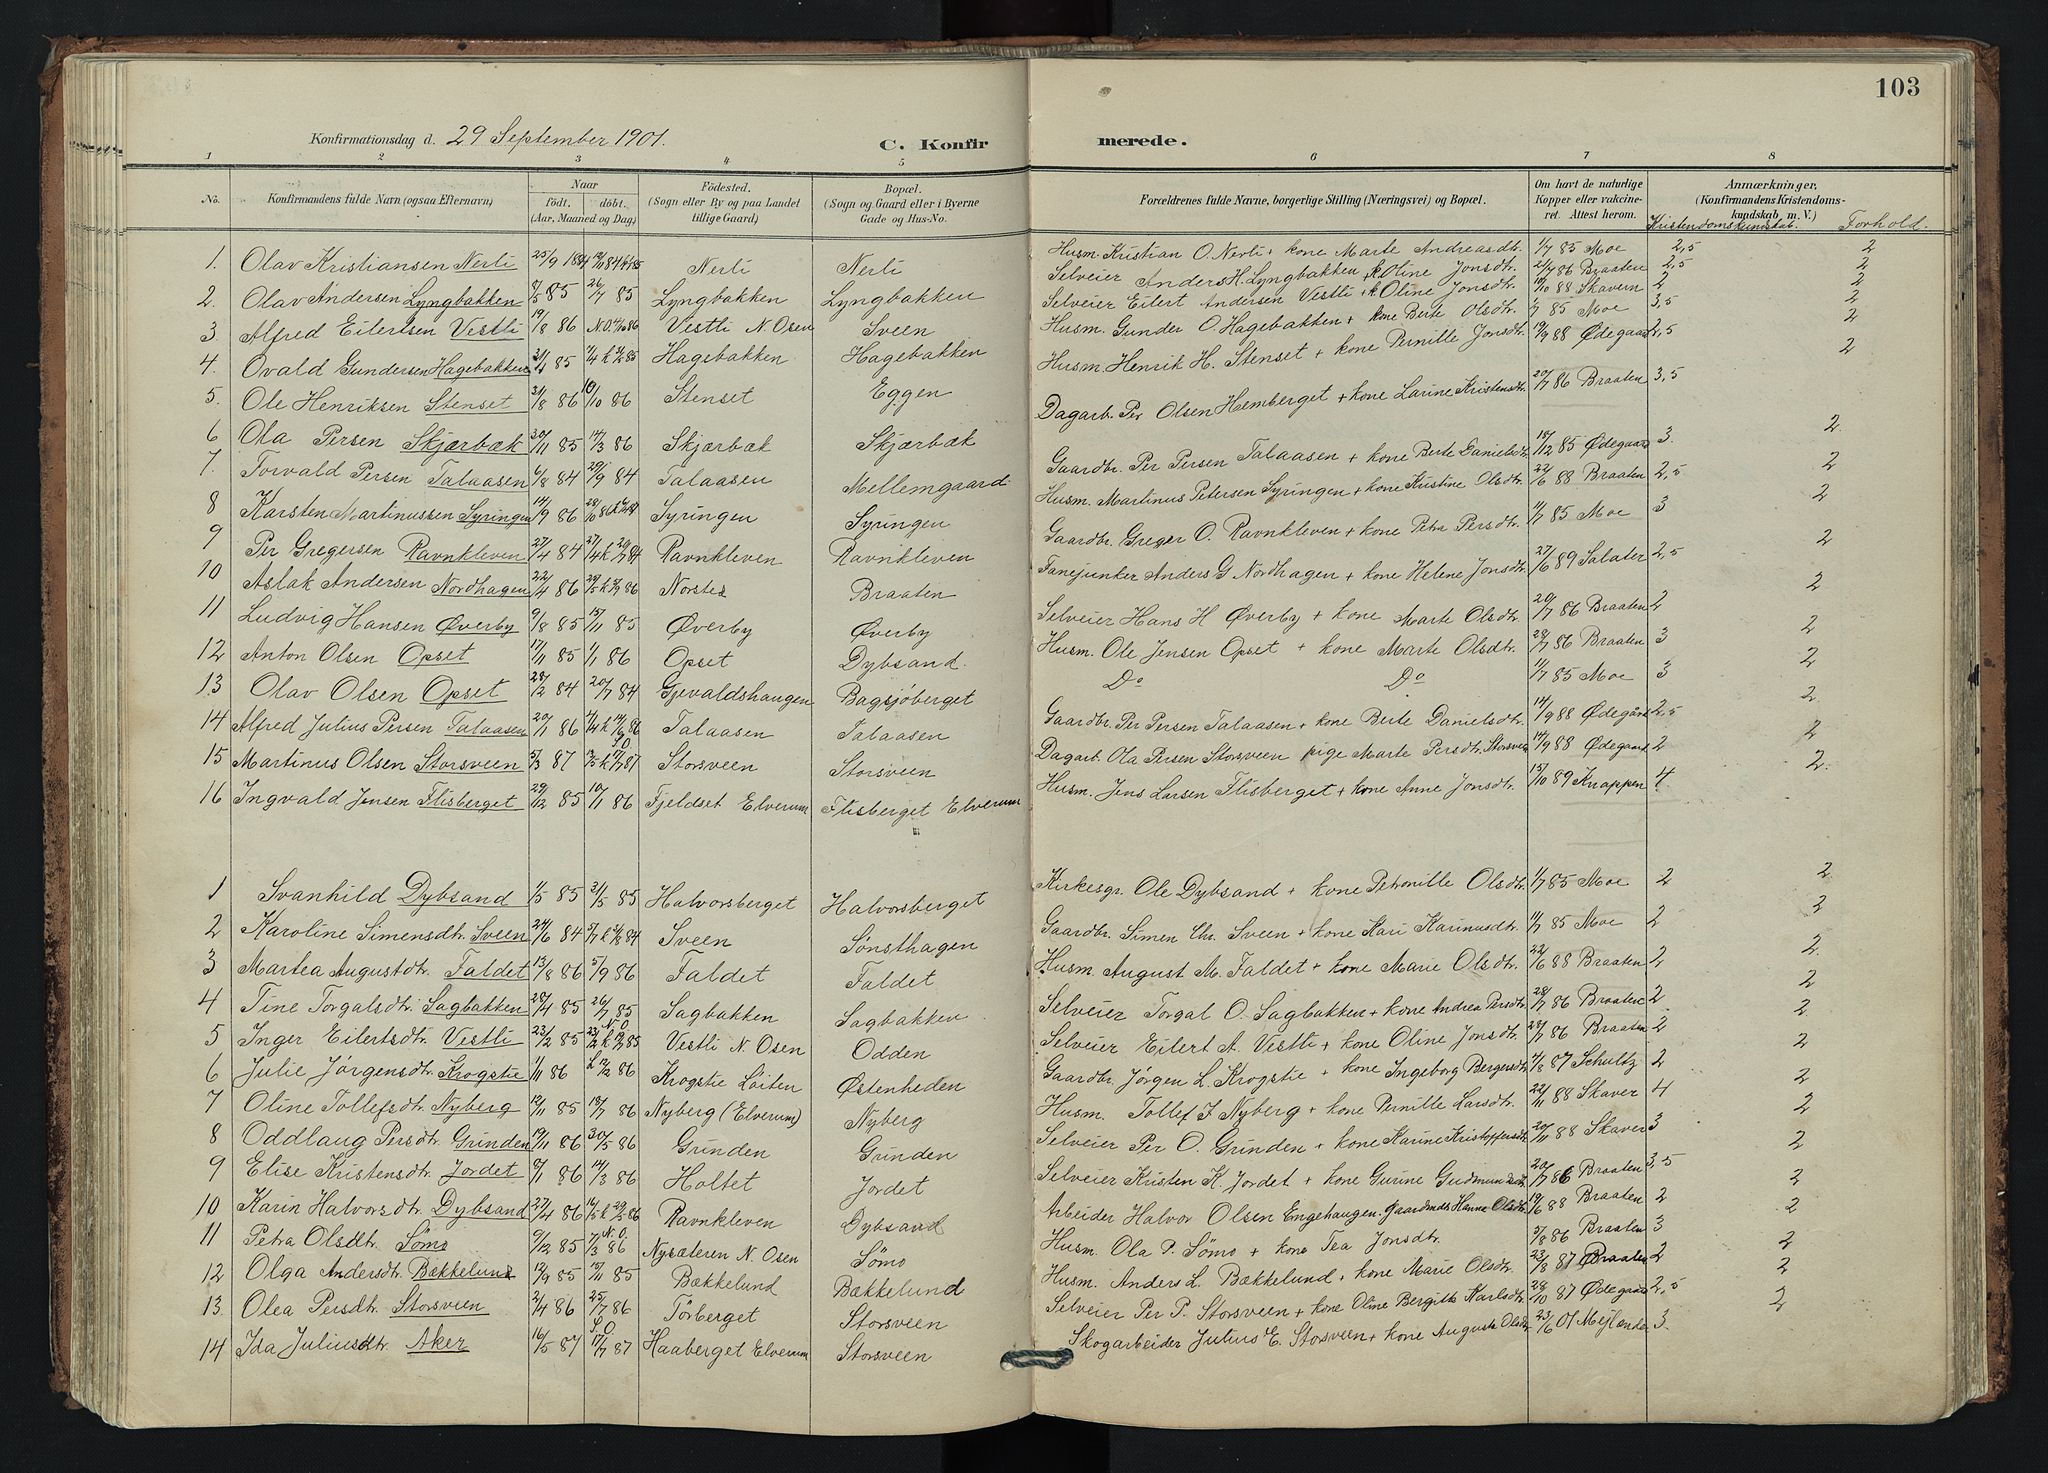 103
Konfirmationsdag d. 29 September 1901.
C. Konfirmerede.
1 2 3 4 5 6 7 8
No. Konfirmandens fulde Navn (ogsaa Efternavn) Naar født. døbt. (Aar, Maaned og Dag) Fødested. (Sogn eller By og paa Landet tillige Gaard) Bopæl. (Sogn og Gaard eller i Byerne Gade og Hus-No. Forældrenes fulde Navne, borgerlige Stilling (Næringsvei) og Bopæl. Om havt de naturlige Kopper eller vakcineret. Attest herom. Anmærkninger, (Konfirmandens Kristendomskundskab m. V.) Kristendomskundskab. Forhold.
1. Olav Kristiansen Nerli 25/9 1884 Nerli Nerli Husm. Kristian O. Nerli + kone Marte Andreasdtr. 1/7 85 Moe 2,5 2
2. Olav Andersen Lyngbakken 8/5 85 26/7 85 Lyngbakken Lyngbakken Selveier Anders H. Lyngbakken + k Oline Jonsdtr. 86 Braaten 2,5 2
3 Alfred Eilertsen Vestli 19/8 86 Vestli N. Osen Sveen Selveier Eilert Andersen Vestli + k Oline Jonsdtr. 88 Skavern 2 2
4. Ovald Gundersen Hagebakken 85 Hagebakken Hagebakken Husm. Gunder O. Hagebakken + kone Berte Olsdtr. 1/7 85 Moe 3,5 2
5. Ole Henriksen Stenset 31/8 86 10/10 86 Stenset Eggen Husm. Henrik H. Stenset + kone Pernille Jonsdtr. 19/9 88 Ødegaard 2,5 2
6 Ola Persen Skjærbæk 30/11 85 14/3 86 Skjærbæk Skjærbæk Dagarb. Per Olsen Hemberget + kone Larine Kristensdtr. 20/7 86 Braaten 3,5 2
7. Torvald Persen Talaasen 6/8 84 29/9 84 Talaasen Mellemgaard. Gaardbr. Per Persen Talaasen + kone Berte Danielsdtr. 15/12 85 Ødegaard 3. 2
8 Karsten Martinussen Syringen 14/9 86 Syringen Syringen Husm. Martinus Petersen Syringen + kone Kristine Olsdtr. 22/6 88 Braaten 2,5 2
9 Per Gregersen Ravnkleven 27/4 84 Ravnkleven Ravnkleven Gaardbr. Greger O. Ravnkleven + kone Petra Persdtr. 1/7 85 Moe 3 2
10 Aslak Andersen Nordhagen 22/4 86 Norstes Braaten Fanejunker Anders G Nordhagen + kone Helene Jonsdtr. 27/6 89 Salater 2,5 2
11 Ludvig Hansen Øverby 9/8 85 15/11 85 Øverby Øverby Selveier Hans H Øverby + kone Marte Olsdtr. 20/7 86 Braaten 2 2
12 Anton Olsen Opset 17/11 85 1/1 86 Opset Dybsand. Husm. Ole Jensen Opset + kone Marte Olsdtr. 28/7 86 Braaten 3 2
13 Olav Olsen Opset 28/2 84 20/7 84 Gjevaldshaugen Bagsjøberget Do Do 1/7 85 Moe 3 2
14 Alfred Julius Persen Talaasen 20/1 86 Talaasen Talaasen Gaardbr. Per Persen Talaasen + kone Berte Danielsdtr. 14/9 88 Ødegård 2,5 2
15 Martinus Olsen Storsveen 5/3 87 Storsveen Storsveen Dagarb. Ola Persen Storsveen pige Marte Persdtr. Storsveen 14/9 88 Ødegaard 2 2
16 Ingvald Jensen Flisberget 29/12 85 10/11 86 Fjeldset Elverum Flisberget Elverum Husm. Jens Larsen Flisberget + kone Anne Jonsdtr. 15/10 89 Knappen 4 2.
1 Svanhild Dybsand 1/5 85 31/5 85 Halvorsberget Halvorsberget Kirkesgr. Ole Dybsand + kone Petronille Olsdtr. 1/7 85 Moe 2 2
2 Karoline Simensdtr. Sveen 24/6 84 Sveen Sønsthagen Gaardbr. Simen Chr. Sveen + kone Kari Karinusdtr. 1/7 85 Moe 2 2
3 Martea Augustdtr. Faldet 13/8 86 5/9 86 Faldet Faldet Husm. August M. Faldet + kone Marie Olsdtr. 22/6 88 Braaten 2 2.
4 Tine Torgalsdtr. Sagbakken 28/4 85 26/7 85 Sagbakken Sagbakken Selveier Torgal O. Sagbakken + kone Andrea Persdtr. 28/7 86 Braaten 2 2
5 Inger Eilertsdtr. Vestli 23/2 85 Vestli N. Osen Odden Selveier Eilert A. Vestli + kone Oline Jonsdtr. 28/7 86 Braaten 2 2
6 Julie Jørgensdtr. Krogstie 1/11 86 Krogstie Löiten Østenheden Gaardbr. Jørgen L. Krogstie + kone Ingeborg Bergersdtr. 4/8 87 Schultz 2 2
7 Oline Tollefsdtr. Nyberg 12/11 85 18/7 86 Nyberg (Elverum) Nyberg Husm. Tollef J Nyberg + kone Pernille Larsdtr. 22/11 88 Skaver 4 2
8 Oddlaug Persdtr. Grinden 19/11 86 30/5 86 Grinden Grinden Selveier Per O. Grinden + kone Karine Kristoffersdtr. 20/11 88 Skaver 3 2
9 Elise Kristensdtr. Jordet 8/1 86 14/3 86 Holtet Jordet Selveier Kristen K. Jordet + kone Gurine Gudmundsdtr. 20/7 86 Braaten 3,5 2
10 Karin Halvorsdtr. Dybsand 27/4 86 Ravnkleven Dybsand Arbeider Halvor Olsen Engehaugen. Gaardmds Hanna Olsdtr. 19/6 88 Braaten 2 2
11 Petra Olsdtr. Sömo 9/12 85 7/3 86 N. O. Nysæteren N. Osen Sömo Husm. Ola P. Sömo + kone Tea Jonsdtr. 5/8 86 Braaten 3 2
12 Olga Andersdtr. Bækkelund 12/9 85 15/11 85 Bækkelund Bækkelund Husm. Anders L. Bækkelund + kone Marie Olsdtr. 23/3 87 Braaten 2 2
13. Olea Persdtr. Storsveen 2/4 86 25/7 86 Törberget Storsveen Selveier Per P. Storsveen + kone Oline Bergitte Karlsdtr. 28/10 87 Ødegaard 2,5 2
14 Ida Juliusdtr. Aker 16/5 87 17/7 87 Haaberget Elverum Storsveen Skogarbeider Julius E. Storsveen + kone Auguste Olsdtr. 23/6 01 Mejlænder 3.